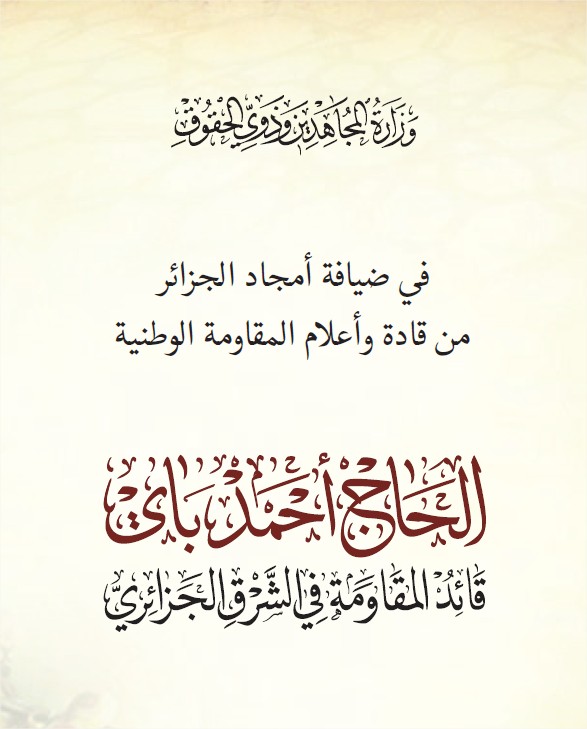 وَزَارَةُ المُجَاهِدِينَ وَذَوِي الحُقُوقِ
في ضيافة أمجاد الجزائر
من قادة وأعلام المقاومة الوطنية
الحَاج أحْمَد بَاي
قَائِدُ المقَاومَةِ فِي الشَّرْقِ الجَزَائِرِيِّ